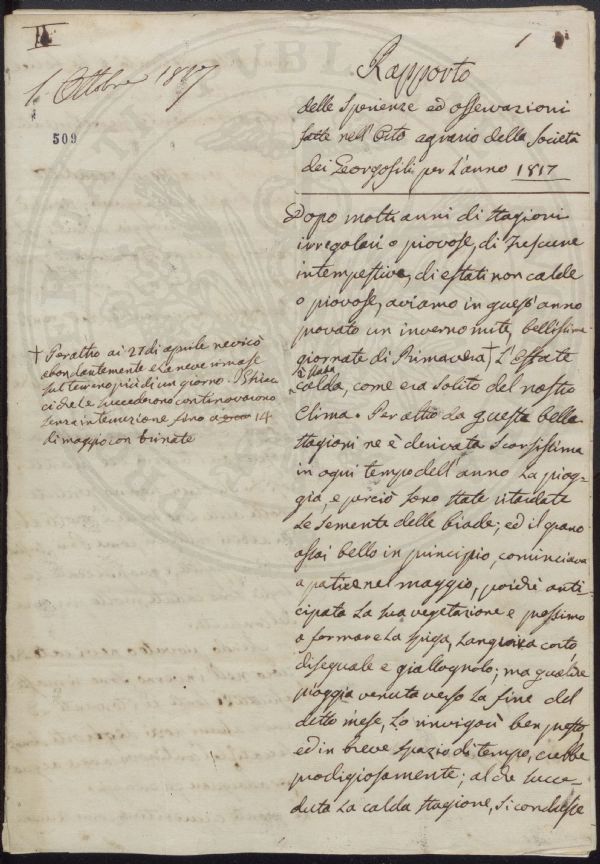 1
1. Ottobre 1817
509
Rapporto
delle sperienze ed osservazioni
fatte nell'Orto agrario della Società
dei Georgofili per l'anno 1817
Dopo molti anni di stagioni
irregolari o piovose, di Frescure
intempestive, di estati non calde
o piovose, aviamo in quest'anno
provato un inverno mite, bellissime
giornate di Primavera † L'Estate
è stata
calda, come era solito del nostro
Clima. Peraltro da queste belle
stagioni ne è derivata scarsissima
in ogni tempo dell'anno la piog-
gia, e perciò sono state ritardate
le sementa delle biade; ed il grano
assai bello in principio, cominciava
a patire nel maggio, poichè anti-
cipata la sua vegetazione e prossimo
a formare la spiga, languiva corto
diseguale e giallognolo; ma qualche
pioggia venuta verso la fine del
detto mese, lo rinvigorì ben presto,
ed in breve spazio di tempo, crebbe
prodigiosamente; al che succe-
duta la calda stagione, si condusse
† Peraltro ai 27 di aprile nevicò
abondantemente e la neve rimase
sul terreno più di un giorno. I Ghiac-
ci che le succederono continovarono
senza interruzione fino a 14
di maggio con brinate